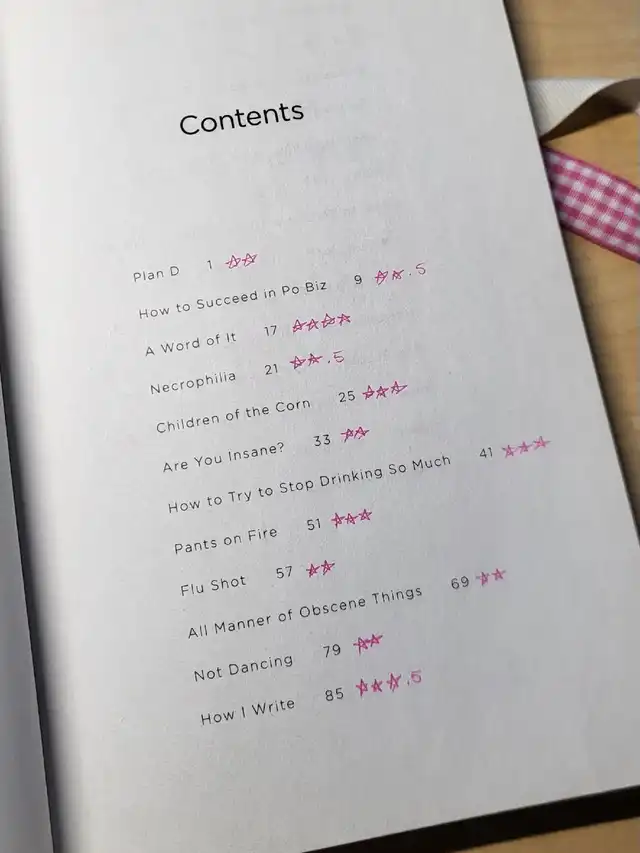 Contents
Plan D 1 ☆☆
How to Succeed in Po Biz 9 ☆☆.5
A Word of It 17 ☆☆☆☆
Necrophilia 21 ☆☆.5
Children of the Corn 25 ☆☆☆
Are You Insane? 33 ☆☆
How to Try to Stop Drinking So Much 41 ☆☆☆
Pants on Fire 51 ☆☆☆
Flu Shot 57 ☆☆
All Manner of Obscene Things 69 ☆☆
Not Dancing 79 ☆☆
How I Write 85 ☆☆☆.5